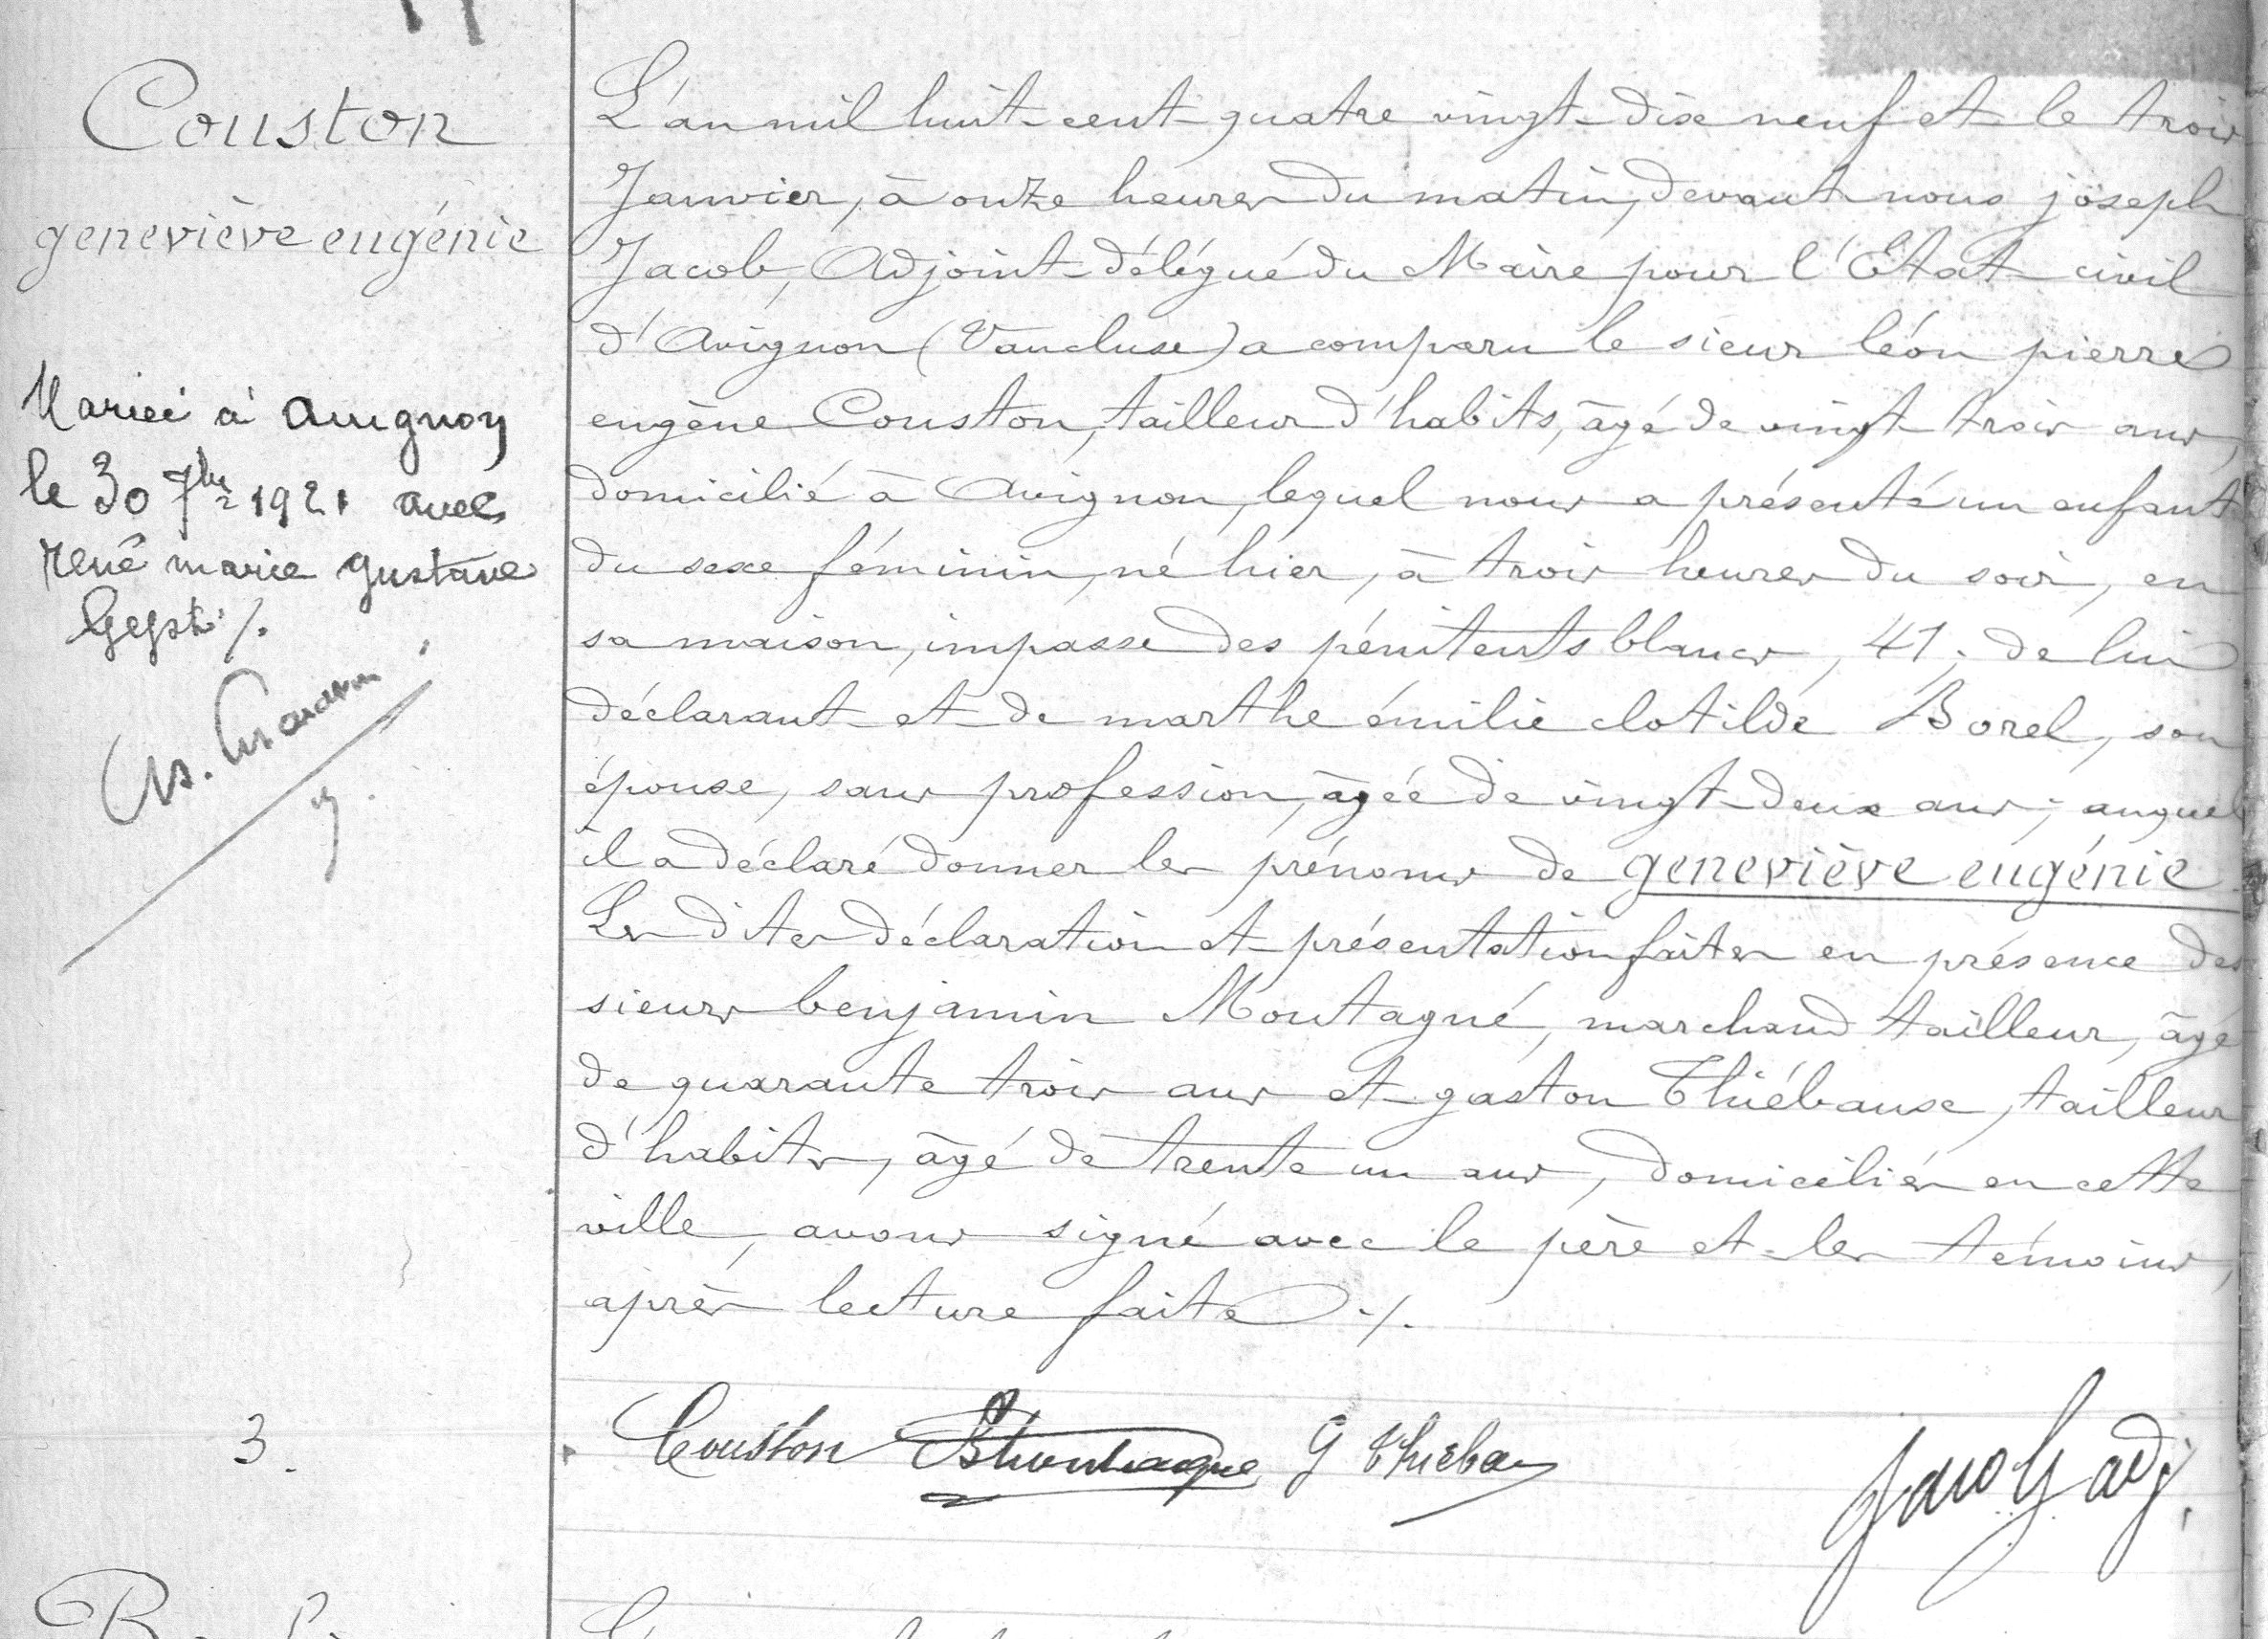 Couston
geneviève eugénie
Mariée à Avignon
le 30 7bre 1921 avec
René marie gustave
L'an mil huit-cent-quatre vingt-dix neuf et le trois
Janvier, à onze heures du matin, devant nous joseph
Jacob, Adjoint-délégué du Maire pour l'Etat-civil
d'Avignon (Vaucluse) a comparu le sieur léon pierre
eugène Couston, tailleur d'habits, âgé de vingt-trois ans,
domicilié à Avignon, lequel nous a présenté un enfant
du sexe féminin, né hier, à trois heures du soir, en
sa maison, impasse des pénitents blancs, 41; de lui
déclarant et de marthe émilie clotilde Borel, son
épouse, sans profession, âgée de vingt-deux ans; auquel
il a déclaré donner les prénoms de geneviève eugénie.
Les dites déclaration et présentation faites en présence des
sieurs benjamin Montagné, marchand tailleur, âgé
de quarante trois ans et gaston Thiébaux, tailleur
d'habits, âgé de trente un ans, domiciliés en cette
ville, avons signé avec le père et les témoins,
après lecture faite ./.
3.
Couston BMontagné G Thiebau
Jacob adj.